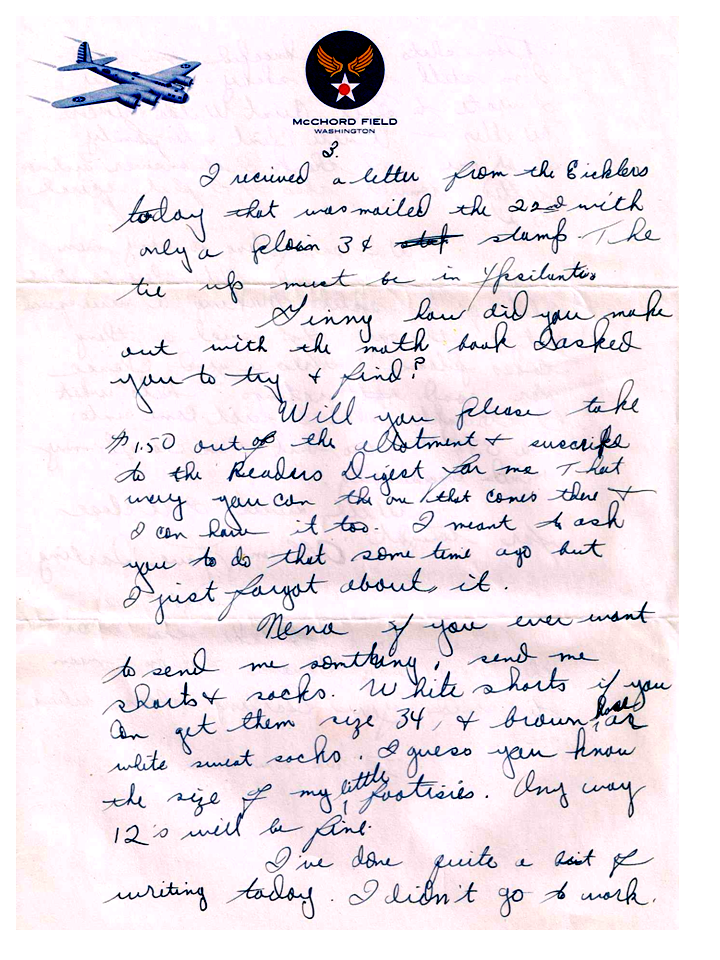 McCHORD FIELD
WASHINGTON
3.
I recived a letter from the Eicklers
today that was mailed the 22nd with
only a plain 3¢ stamp. The
tie up must be in Ypsilanti.
Ginny how did you make
out with the math book I asked
you to try & find?
Will you please take
$1.50 out of the allotment & suscribe
to the Readers Digest for me That
way you can the one that comes there &
I can have it too. I meant to ask
you to do that some time ago but
I just forgot about it.
Nena if you ever want
to send me somthing, send me
shorts & socks. White shorts if you
can get them size 34, & brown or
white sweat socks. I guess you know
the size of my little footisies. Any way
12's will be fine.
I've done quite a bit of
writing today. I didn't go to work.